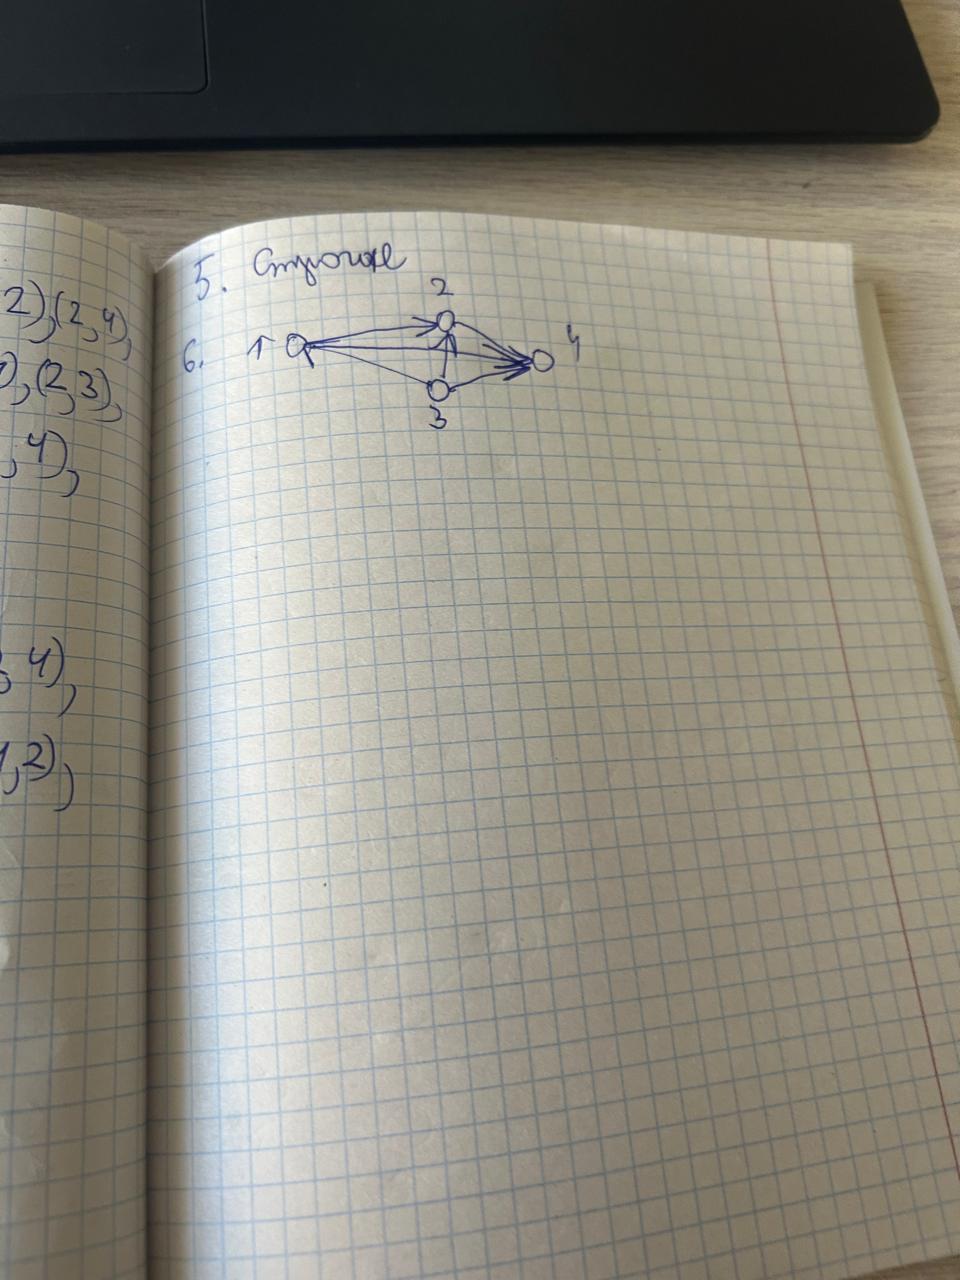 2),(2,4),
),(2,3),
,4),
3 4),
1,2),
5. Строгое
6. 1 2 3 4